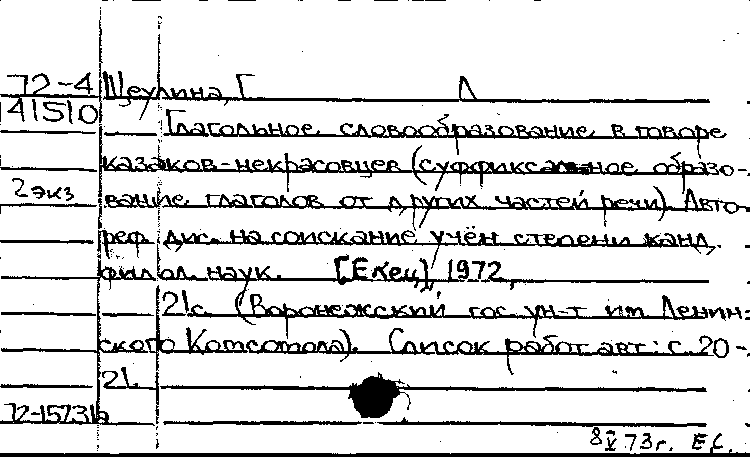 72-4 Щеулина, Г Л
41510
Глагольное словообразование в говоре
казаков-некрасовцев (суффиксальное образо-
2 экз вание глаголов от других частей речи). Авто-
реф. дис. на соискание учён степени канд.
филол. наук. [Елец], 1972,
21с. (Воронежский гос ун-т им Ленин-
ского Комсомола). Список работ авт: с. 20-
21.
72-15731а
8 V 73г. Е.С.